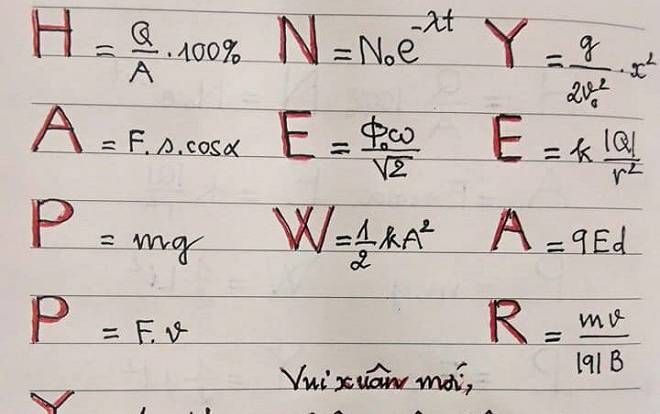 H = Q/A . 100% N = N₀e^-λt Y = g/2v₀² . x²
A = F.s.cosα E = Φ₀ω/√2 E = k |Q|/r²
P = mg W = 1/2 kA² A = qEd
P = F.v R = mv/|q|B
Vui xuân mới,
Y